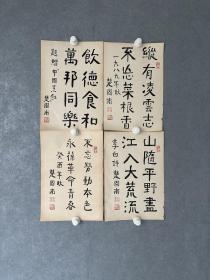 縱有凌雲志
不忘菜根香
一九八九年秋
楚圖南
飲德食和
萬邦同樂
楚圖南
山隨平野盡
江入大荒流
李白詩 楚圖南
不忘勞動本色
永葆革命青春
癸酉年秋 楚圖南